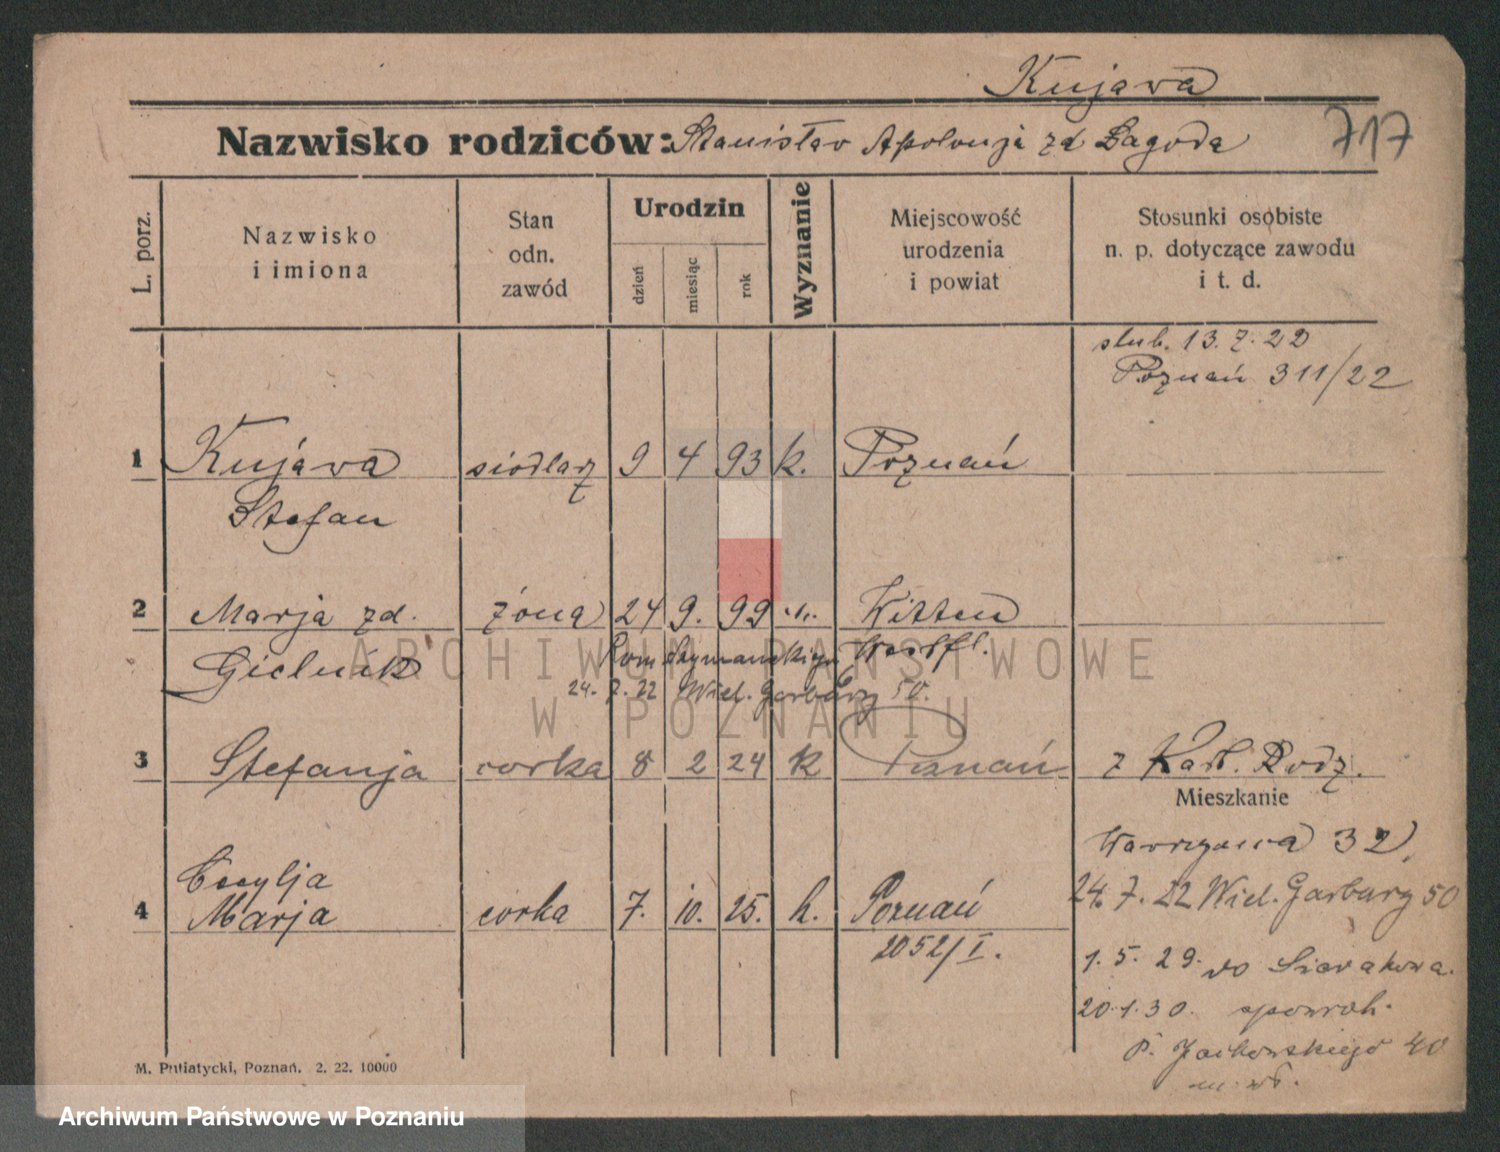 Kujawa
Nazwisko rodziców: Stanisław Apolonja zd Łagoda
717
L. porz.
Nazwisko
i imiona
Stan
odn.
zawód
Urodzin
dzień
miesiąc
rok
Wyznanie
Miejscowość
urodzenia
i powiat
Stosunki osobiste
n. p. dotyczące zawodu
i t. d.
slub. 13. 7. 22
Poznań 311/22
1 Kujawa siodlarz 9 4 93 k. Poznań
Stefan
2 Marja zd. żona 24 9. 99 Witten
Gielnik Westfl.
Rom Szymańskiego
24. 7. 22 Wiel. Garbary 50.
3 Stefanja corka 8 2 24 k Poznań
z Kart. Rodz.
Mieszkanie
Cecylja
4 Marja corka 7. 10. 25. k. Poznań
2052/I.
Wawrzyńca 32
24. 7. 22 Wiel. Garbary 50
1. 5. 29. do Sierakowa.
20.1.30. spowrot.
P. 40
M. Putiatycki, Poznań. 2. 22. 10000
ARCHIWUM PAŃSTWOWE
W POZNANIU
Archiwum Państwowe w Poznaniu